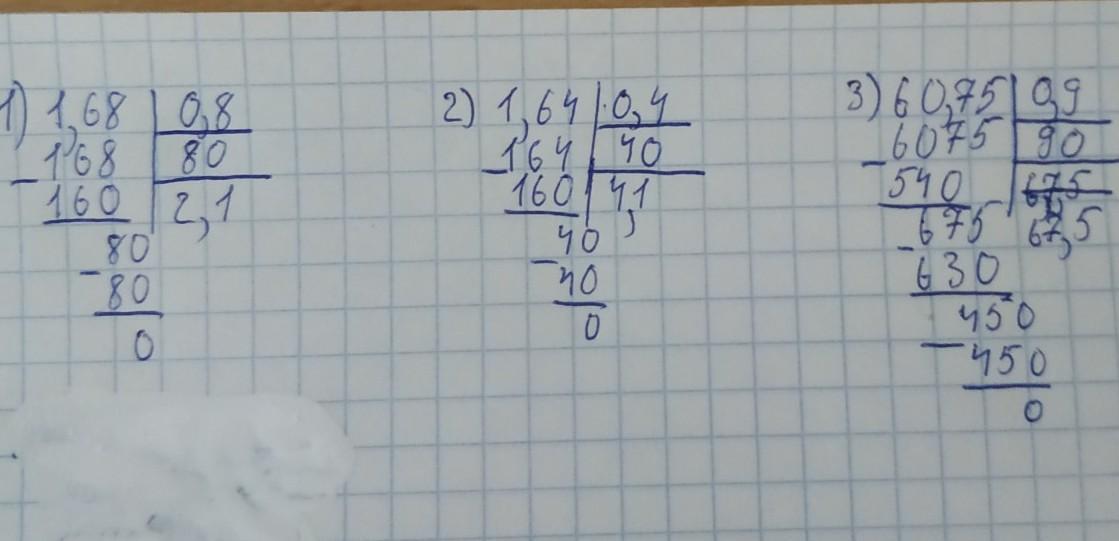 1) 1,68 | 0,8
- 168 | 80
160 | 2,1
80
- 80
0
2) 1,64 | 0,4
- 164 | 40
160 | 4,1
40
- 40
0
3) 60,75 | 0,9
- 6075 | 90
540
- 675 67,5
630
450
- 450
0